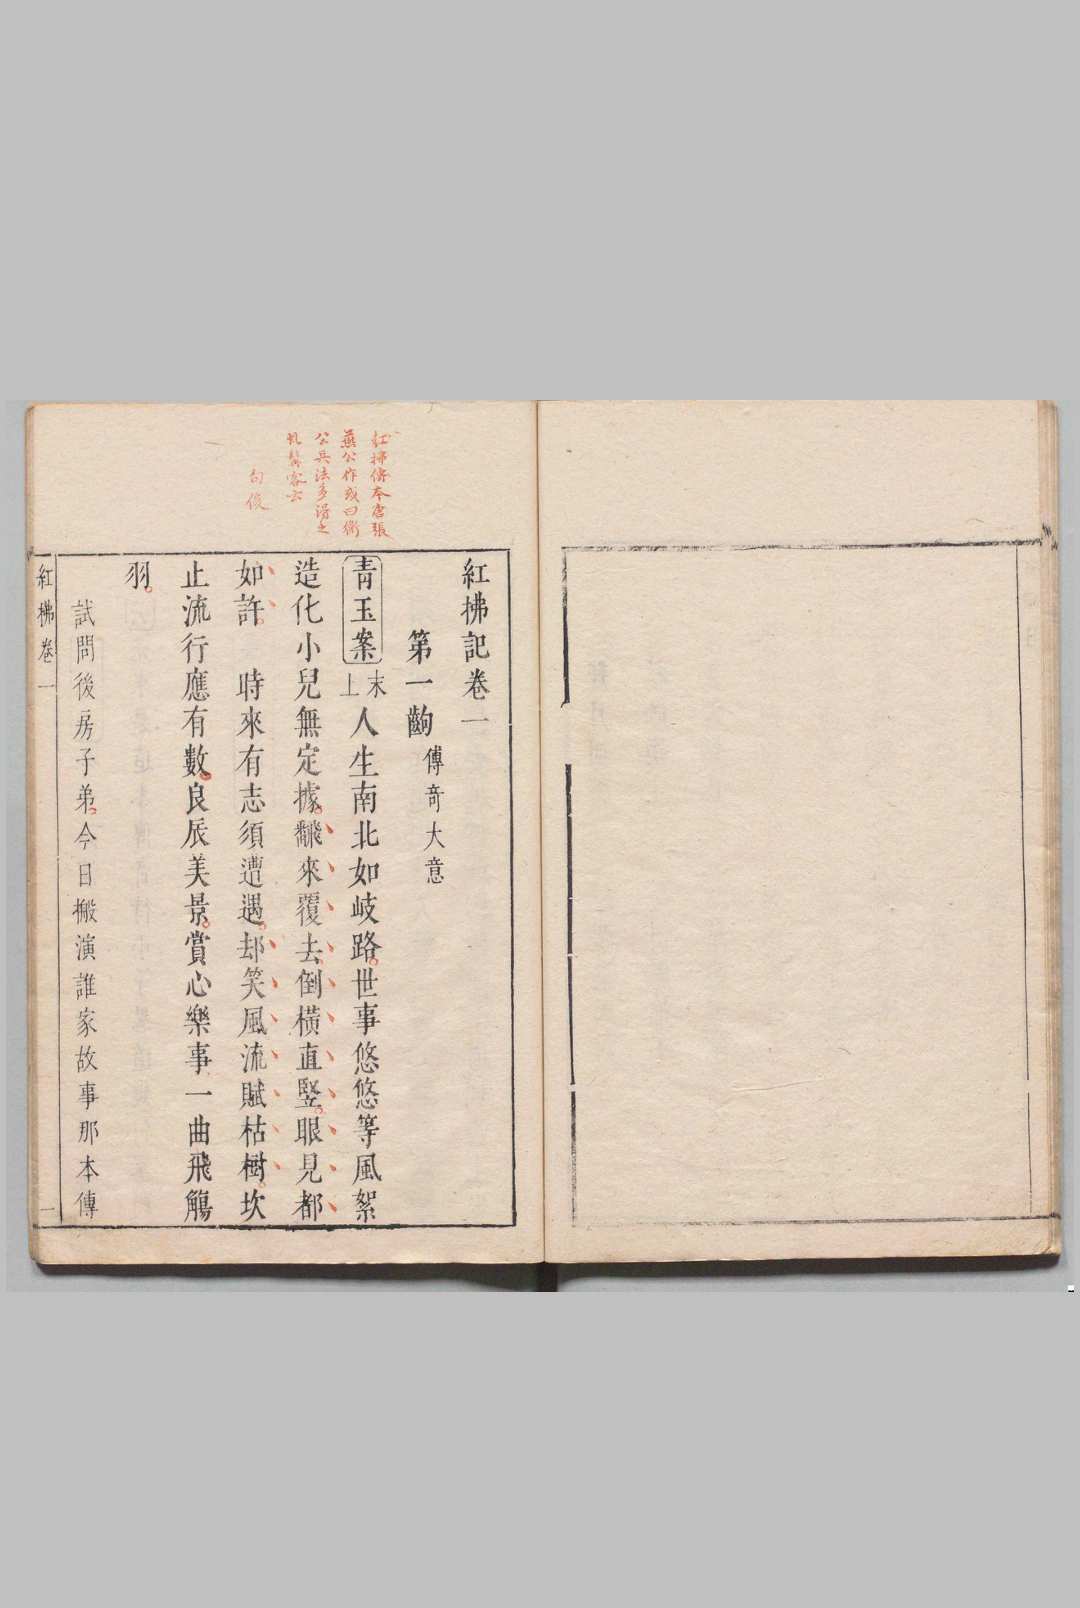 紅拂傳本唐張
燕公作或曰衛
公兵法多得之
虬髯客云
句俊
紅拂記卷一
第一齣 傳奇大意
青玉案 末上 人生南北如岐路。世事悠悠等風絮
造化小兒無定據。飜來覆去。倒橫直竪。眼見都
如許。 時來有志須遭遇。却笑風流賦枯樹。坎
止流行應有數。良辰美景。賞心樂事一曲飛觴
羽。
試問後房子弟。今日搬演誰家故事那本傳
紅拂卷一
一